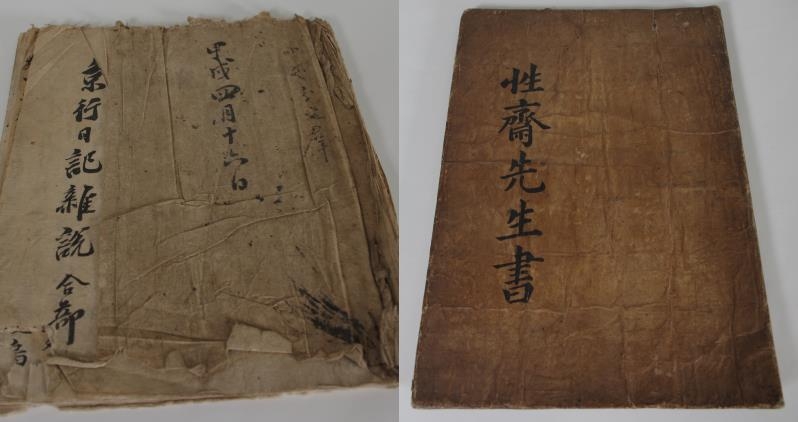 甲戌四月十六日
京行日記雜說 合部
性齋先生書